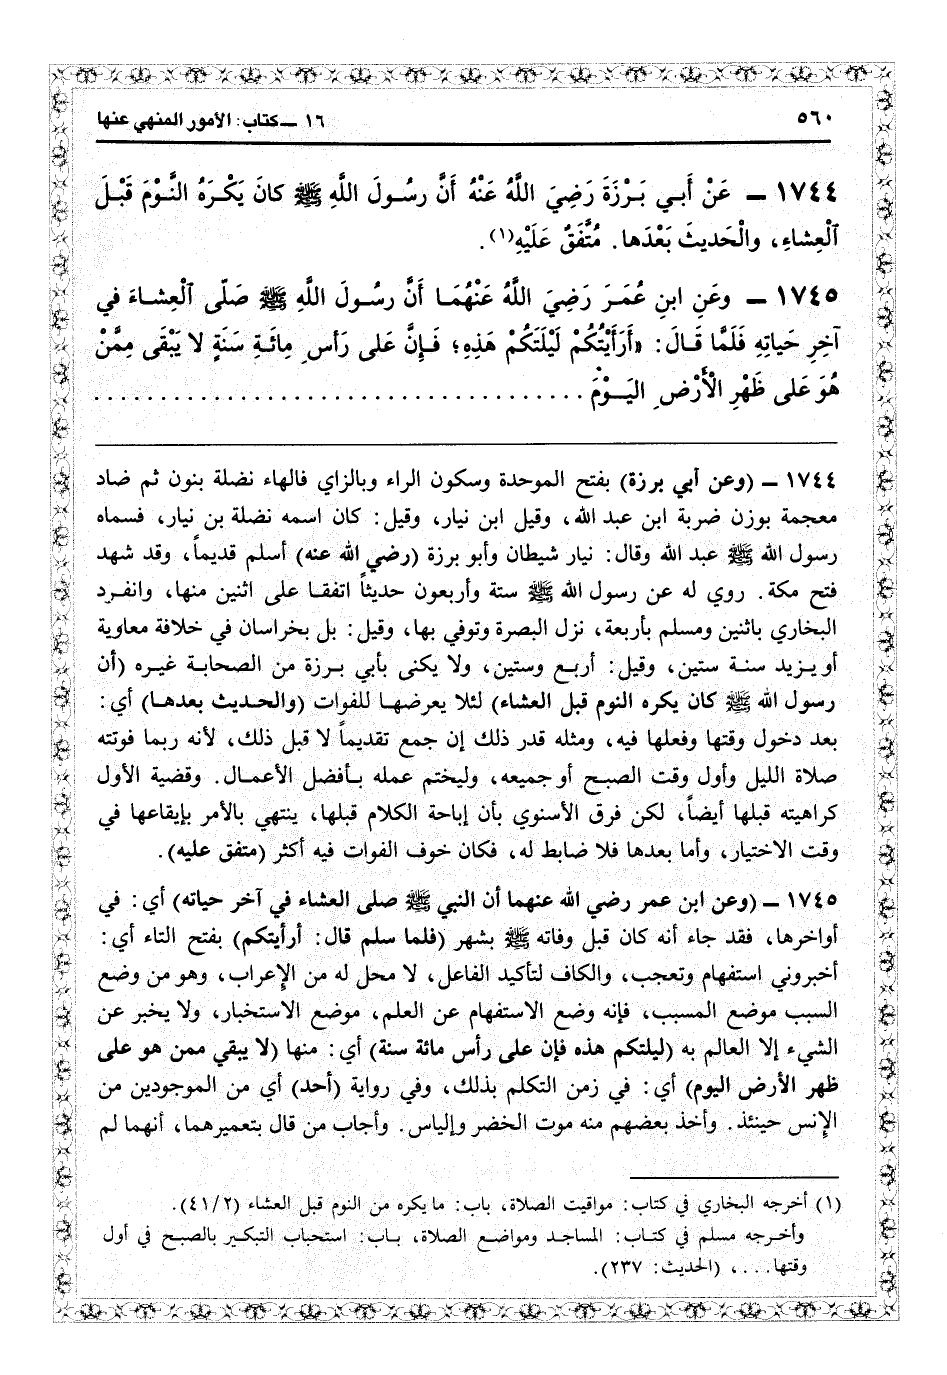 ٥٦٠
١٦ ــ كتاب: الأمور المنهي عنها
١٧٤٤ ــ عَنْ أَبي بَرْزَةَ رَضِيَ اللَّهُ عَنْهُ أَنَّ رسُولَ اللَّهِ ﷺ كانَ يَكْرَهُ النَّوْمَ قَبْلَ
ٱلْعِشاءِ، والْحَديثَ بَعْدَها. مُتَّفَقٌ عَلَيْهِ(١).
١٧٤٥ ــ وعَنِ ابنِ عُمَرَ رَضِيَ اللَّهُ عَنْهُمَا أَنَّ رسُولَ اللَّهِ ﷺ صَلّى ٱلْعِشاءَ في
آخِرِ حَياتِهِ فَلَمَّا قَالَ: «أَرَأَيْتُكُمْ لَيْلَتَكُمْ هَذِهِ؛ فَإِنَّ عَلى رَأسِ مِائَةِ سَنَةٍ لا يَبْقَى مِمَّنْ
هُوَ عَلى ظَهْرِ الْأَرْضِ اليَوْمَ ....................................
١٧٤٤ ــ (وعن أبي برزة) بفتح الموحدة وسكون الراء وبالزاي فالهاء نضلة بنون ثم ضاد
معجمة بوزن ضربة ابن عبد الله، وقيل ابن نيار، وقيل: كان اسمه نضلة بن نيار، فسماه
رسول الله ﷺ عبد الله وقال: نيار شيطان وأبو برزة (رضي الله عنه) أسلم قديماً، وقد شهد
فتح مكة. روي له عن رسول الله ﷺ ستة وأربعون حديثاً اتفقا على اثنين منها، وانفرد
البخاري باثنين ومسلم بأربعة، نزل البصرة وتوفي بها، وقيل: بل بخراسان في خلافة معاوية
أو يزيد سنة ستين، وقيل: أربع وستين، ولا يكنى بأبي برزة من الصحابة غيره (أن
رسول الله ﷺ كان يكره النوم قبل العشاء) لئلا يعرضها للفوات (والحديث بعدها) أي:
بعد دخول وقتها وفعلها فيه، ومثله قدر ذلك إن جمع تقديماً لا قبل ذلك، لأنه ربما فوتته
صلاة الليل وأول وقت الصبح أو جميعه، وليختم عمله بأفضل الأعمال. وقضية الأول
كراهيته قبلها أيضاً، لكن فرق الأسنوي بأن إباحة الكلام قبلها، ينتهي بالأمر بإيقاعها في
وقت الاختيار، وأما بعدها فلا ضابط له، فكان خوف الفوات فيه أكثر (متفق عليه).
١٧٤٥ ــ (وعن ابن عمر رضي الله عنهما أن النبي ﷺ صلى العشاء في آخر حياته) أي: في
أواخرها، فقد جاء أنه كان قبل وفاته ﷺ بشهر (فلما سلم قال: أرأيتكم) بفتح التاء أي:
أخبروني استفهام وتعجب، والكاف لتأكيد الفاعل، لا محل له من الإعراب، وهو من وضع
السبب موضع المسبب، فإنه وضع الاستفهام عن العلم، موضع الاستخبار، ولا يخبر عن
الشيء إلا العالم به (ليلتكم هذه فإن على رأس مائة سنة) أي: منها (لا يبقي ممن هو على
ظهر الأرض اليوم) أي: في زمن التكلم بذلك، وفي رواية (أحد) أي من الموجودين من
الإنس حينئذ. وأخذ بعضهم منه موت الخضر وإلياس. وأجاب من قال بتعميرهما، أنهما لم
(١) أخرجه البخاري في كتاب: مواقيت الصلاة، باب: ما يكره من النوم قبل العشاء (٤١/٢).
وأخرجه مسلم في كتاب: المساجد ومواضع الصلاة، باب: استحباب التبكير بالصبح في أول
وقتها...، (الحديث: ٢٣٧).